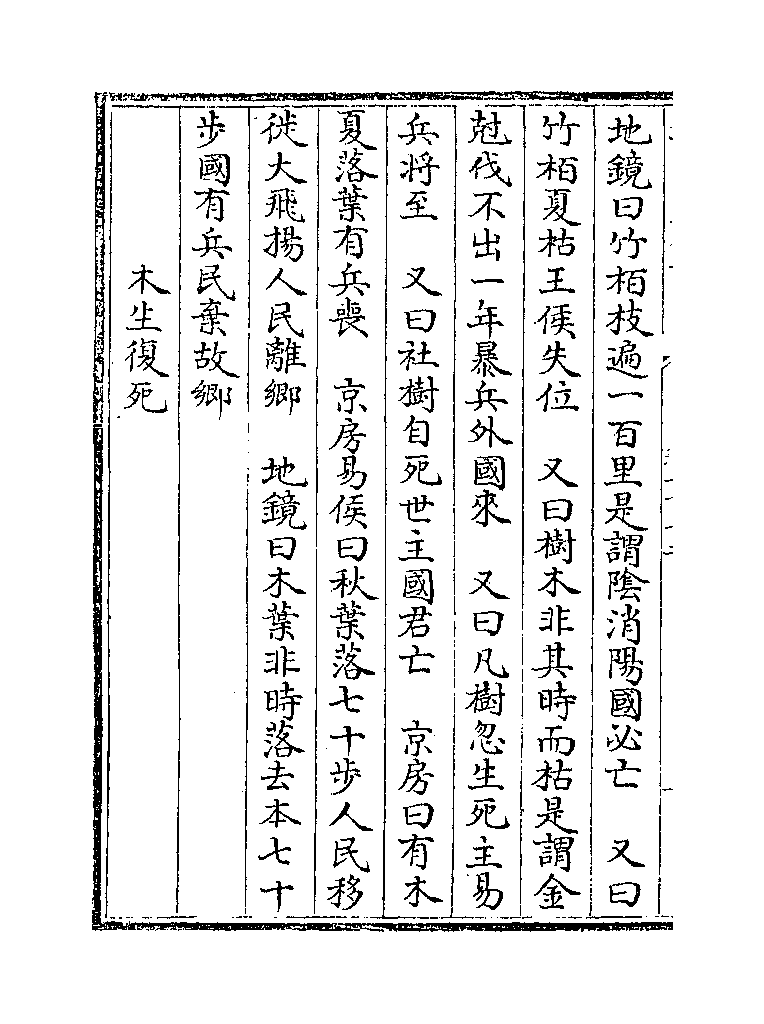 地鏡曰竹栢枝遍一百里是謂陰消陽國必亡　又曰
竹栢夏枯王侯失位　又曰樹木非其時而枯是謂金
尅伐不出一年暴兵外國來　又曰凡樹忽生死主易
兵將至　又曰社樹自死世主國君亡　京房曰有木
夏落葉有兵喪　京房易侯曰秋葉落七十步人民移
徙大飛揚人民離鄉　地鏡曰木葉非時落去本七十
步國有兵民棄故鄉
木生復死